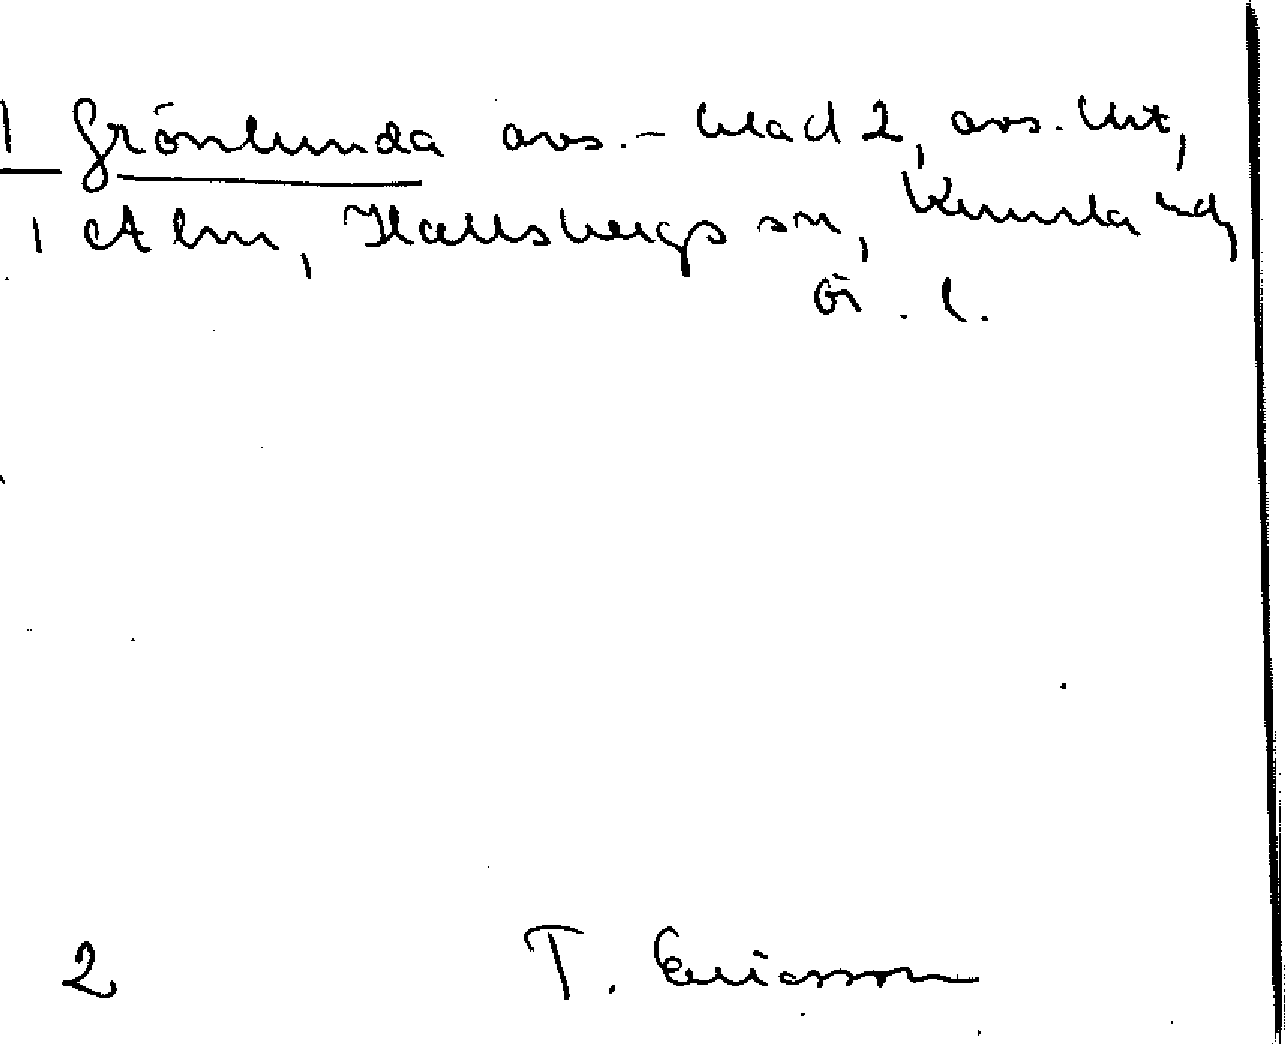 1 Grönlunda avs. - blad 2, avs. Urt,
1 Alm, Hallsbergs sn, Kumla hd,
Ör. l.
2 T. Ericsson